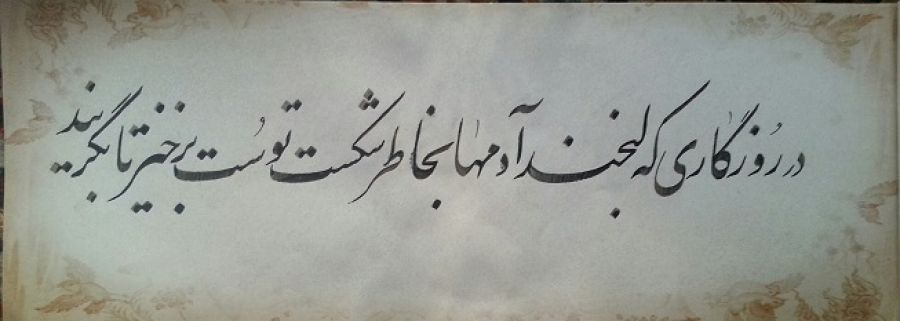 در روزگاری که لبخند آدمها بخاطر شکست توست برخیز تا بگریند